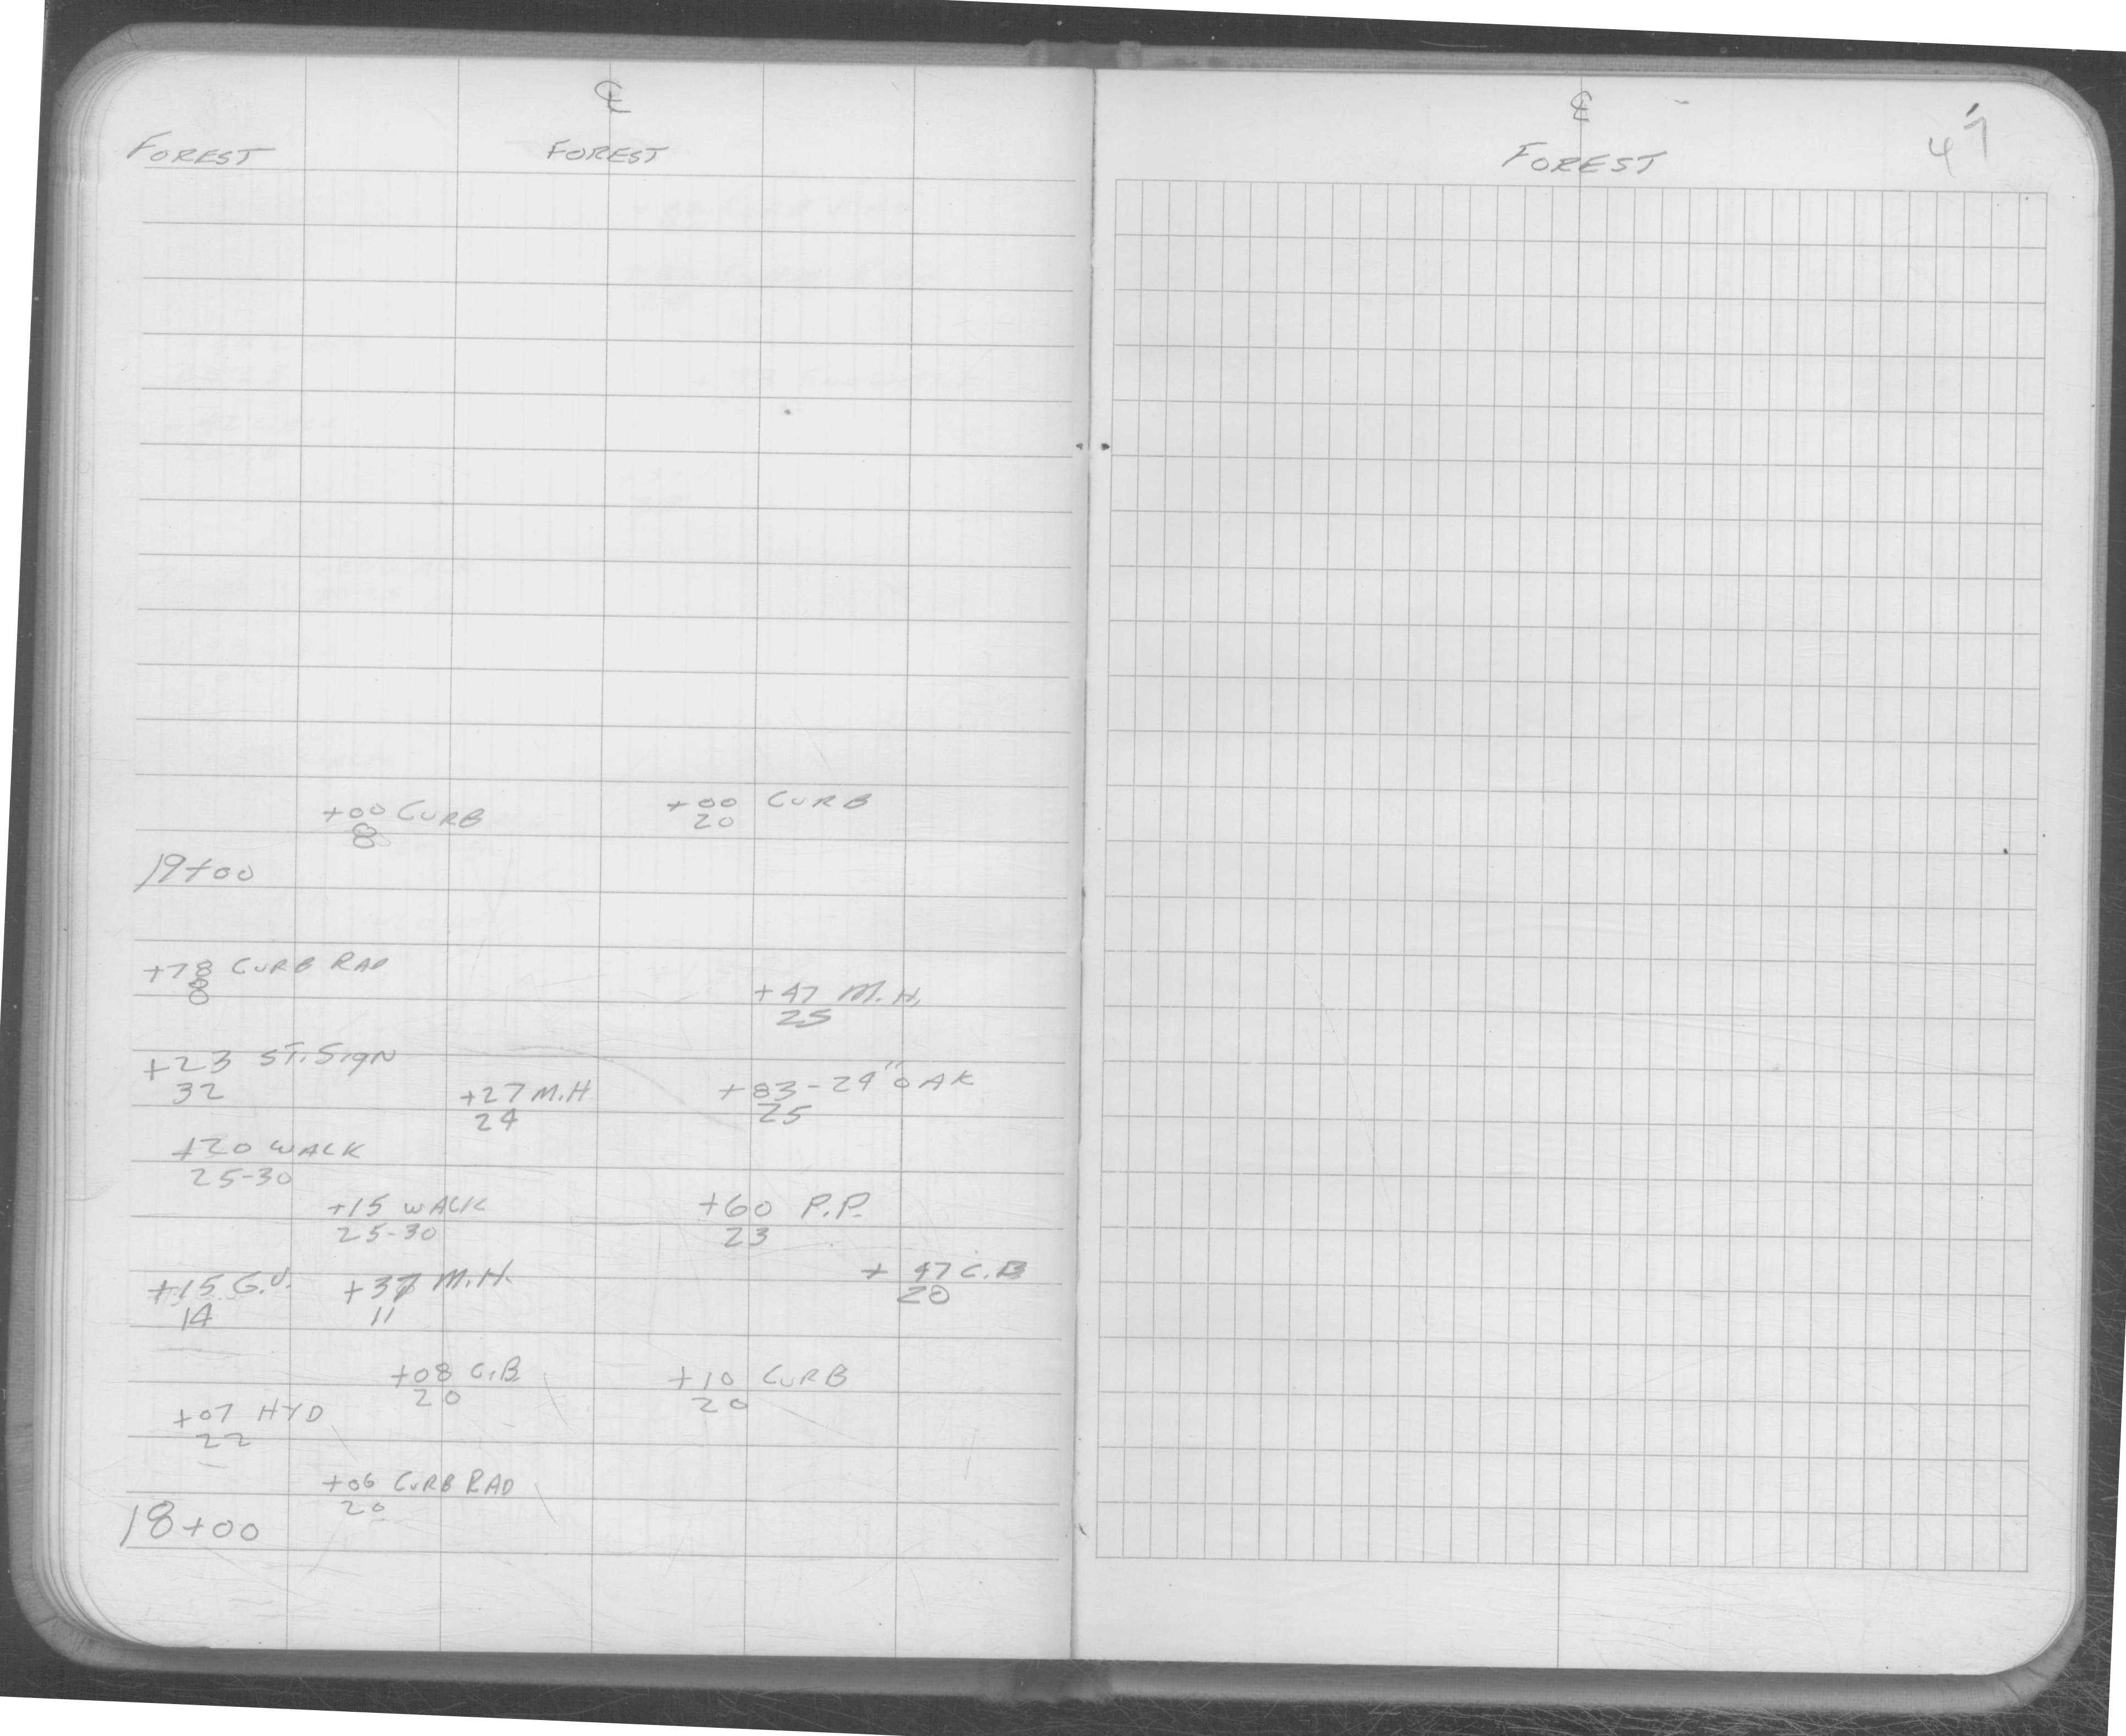 ℄
FOREST FOREST
+00 CURB +00 CURB
8 20
19+00
+78 CURB RAD
8
+47 M.H.
25
+23 ST. SIGN
32
+27 M.H +83-24" OAK
24 25
+20 WALK
25-30
+15 WALK +60 P.P.
25-30 23
+15 G.V. +37 M.H. + 47 C.B
14 11 20
+08 C.B +10 CURB
20 20
+07 HYD
22
+06 CURB RAD
20
18+00
℄
47
FOREST